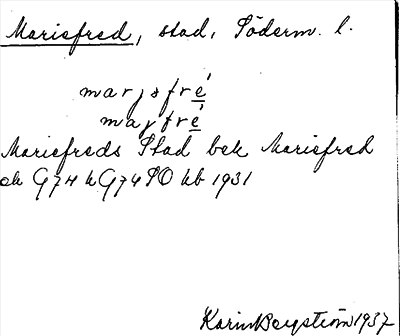 Mariefred, stad, Söderm. l.
marjsfré
majfré
Mariefreds Stad bek Mariefred
sk G74 k G74 SO kb 1931
Karin Bergström 1937